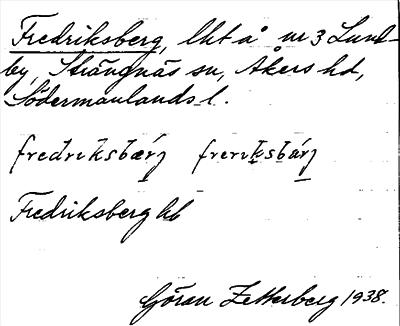 Fredriksberg, lht å nr 3 Lund-
by, Strängnäs sn, Åkers hd,
Södermanlands l.
fredriksbærj freriksbárj
Fredriksberg hb
Göran Zetterberg 1938.